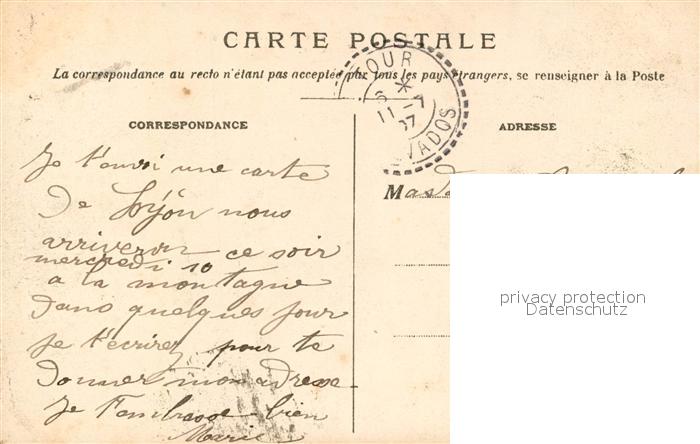 CARTE POSTALE
La correspondance au recto n'étant pas acceptée par tous les pays étrangers, se renseigner à la Poste
TOUR
11-7
07
VADOS
CORRESPONDANCE
ADRESSE
Je t'envoi une carte
De Dijon nous
arriveron ce soir
mercredi 10
a la montagne
Dans quelques jour
Je t'écrirez pour te
Donner mon adresse
Je t'embrasse bien
Marie
Mad
privacy protection
Datenschutz